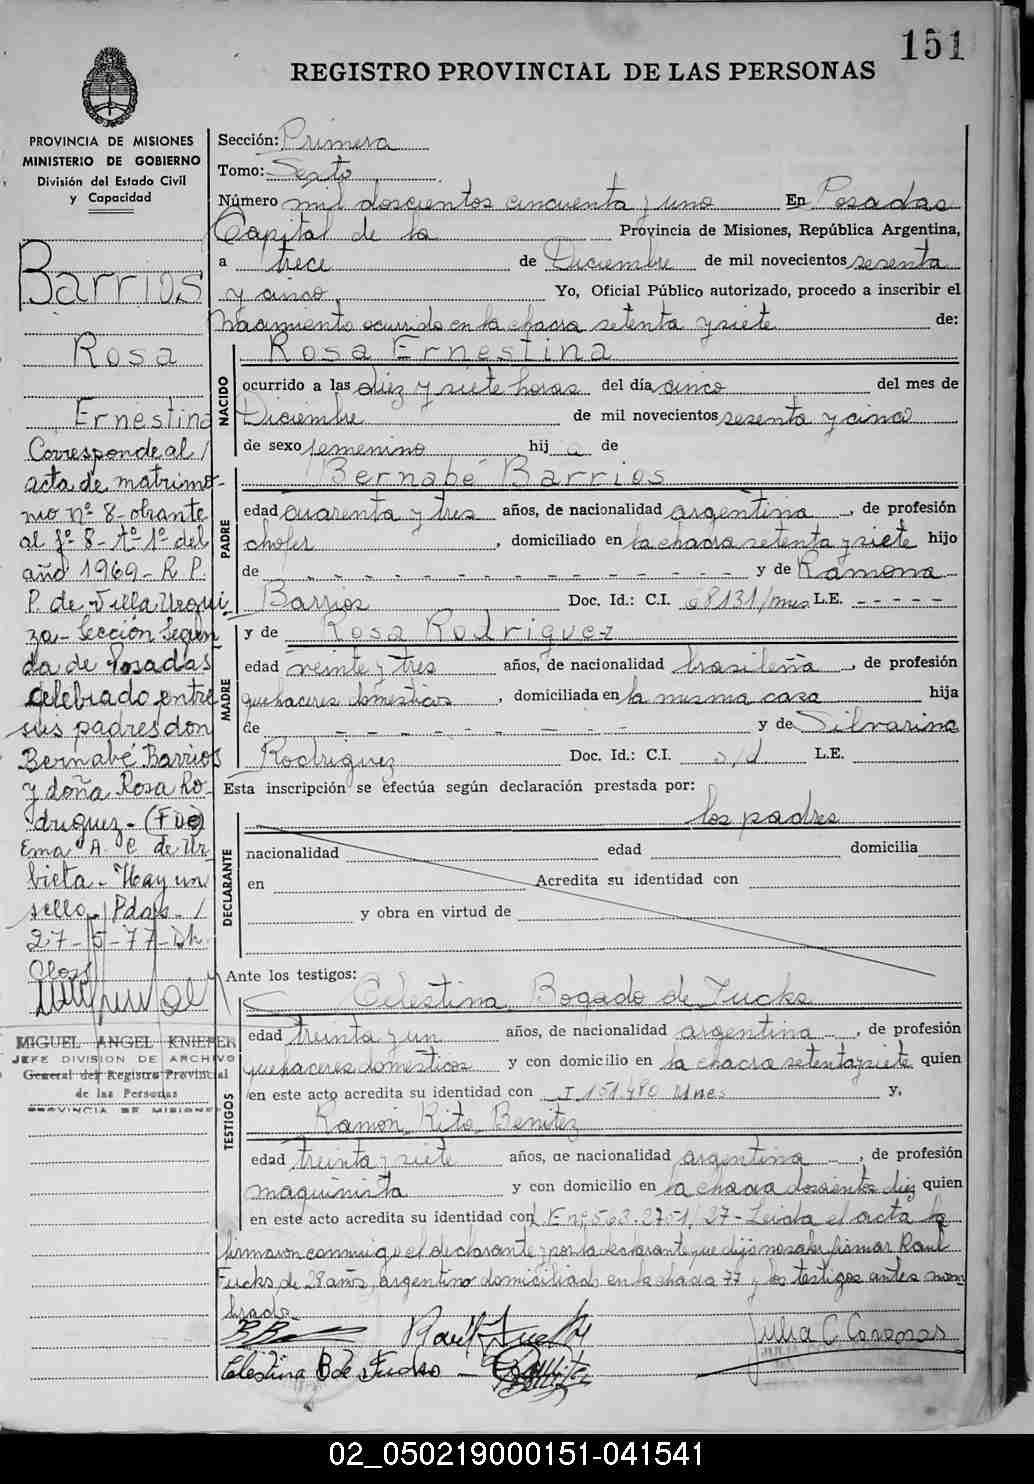 151
REGISTRO PROVINCIAL DE LAS PERSONAS
PROVINCIA DE MISIONES
MINISTERIO DE GOBIERNO
División del Estado Civil
y Capacidad
Barrios
Rosa
Ernestina
Corresponde al /
acta de matrimo-
nio nº 8- obrante
al fº 8- Tº 1º del
año 1969- R. P.
P. de Villa Urqui-
za- Sección Segun
da de Posadas
celebrado entre
sus padres don
Bernabé Barrios
y doña Rosa Ro-
driguez- (Fdo)
Ema A. C. de Ur
bieta- Hay un
sello- Pdas- /
27-5-77-
MIGUEL ANGEL KNIEPER
JEFE DIVISION DE ARCHIVO
General del Registro Provincial
de las Personas
PROVINCIA DE MISIONES
Sección: Primera
Tomo: Sexto
Número mil doscientos cincuenta y uno En Posadas
Capital de la Provincia de Misiones, República Argentina,
a trece de Diciembre de mil novecientos sesenta
y cinco Yo, Oficial Público autorizado, procedo a inscribir el
Nacimiento ocurrido en la chacra setenta y siete de:
NACIDO
Rosa Ernestina
ocurrido a las diez y siete horas del día cinco del mes de
Diciembre de mil novecientos sesenta y cinco
de sexo femenino hij a de
PADRE
Bernabé Barrios
edad cuarenta y tres años, de nacionalidad argentina, de profesión
chofer, domiciliado en la chacra setenta y siete hijo
de - - - - - - - - - - - - - y de Ramona
Barrios Doc. Id.: C.I. 68131/mnes L.E. - - - - -
MADRE
y de Rosa Rodriguez
edad veinte y tres años, de nacionalidad brasileña, de profesión
quehaceres domesticos, domiciliada en la misma casa hija
de - - - - - - - - - y de Silvarina
Rodriguez Doc. Id.: C.I. s/d L.E.
Esta inscripción se efectúa según declaración prestada por:
los padres
DECLARANTE
nacionalidad edad domicilia
en Acredita su identidad con
y obra en virtud de
Ante los testigos:
Celestina Bogado de Fucks
TESTIGOS
edad treinta y un años, de nacionalidad argentina, de profesión
quehaceres domesticos y con domicilio en la chacra setenta y siete quien
en este acto acredita su identidad con I 151.480 Mnes y,
Ramon Rito Benitez
edad treinta y siete años, de nacionalidad argentina, de profesión
maquinista y con domicilio en la chacra doscientos diez quien
en este acto acredita su identidad con L.E nº 563.3751/27- Leida el acta la
firmaron conmigo el declarante y por la declarante que dijo no saber firmar Raul
Fucks, de 28 años, argentino domiciliado en la chacra 77 y los testigos antes nom
brado-
Raul Fucks
Julia C. Canosas
Celestina B de Fucks
02_050219000151-041541